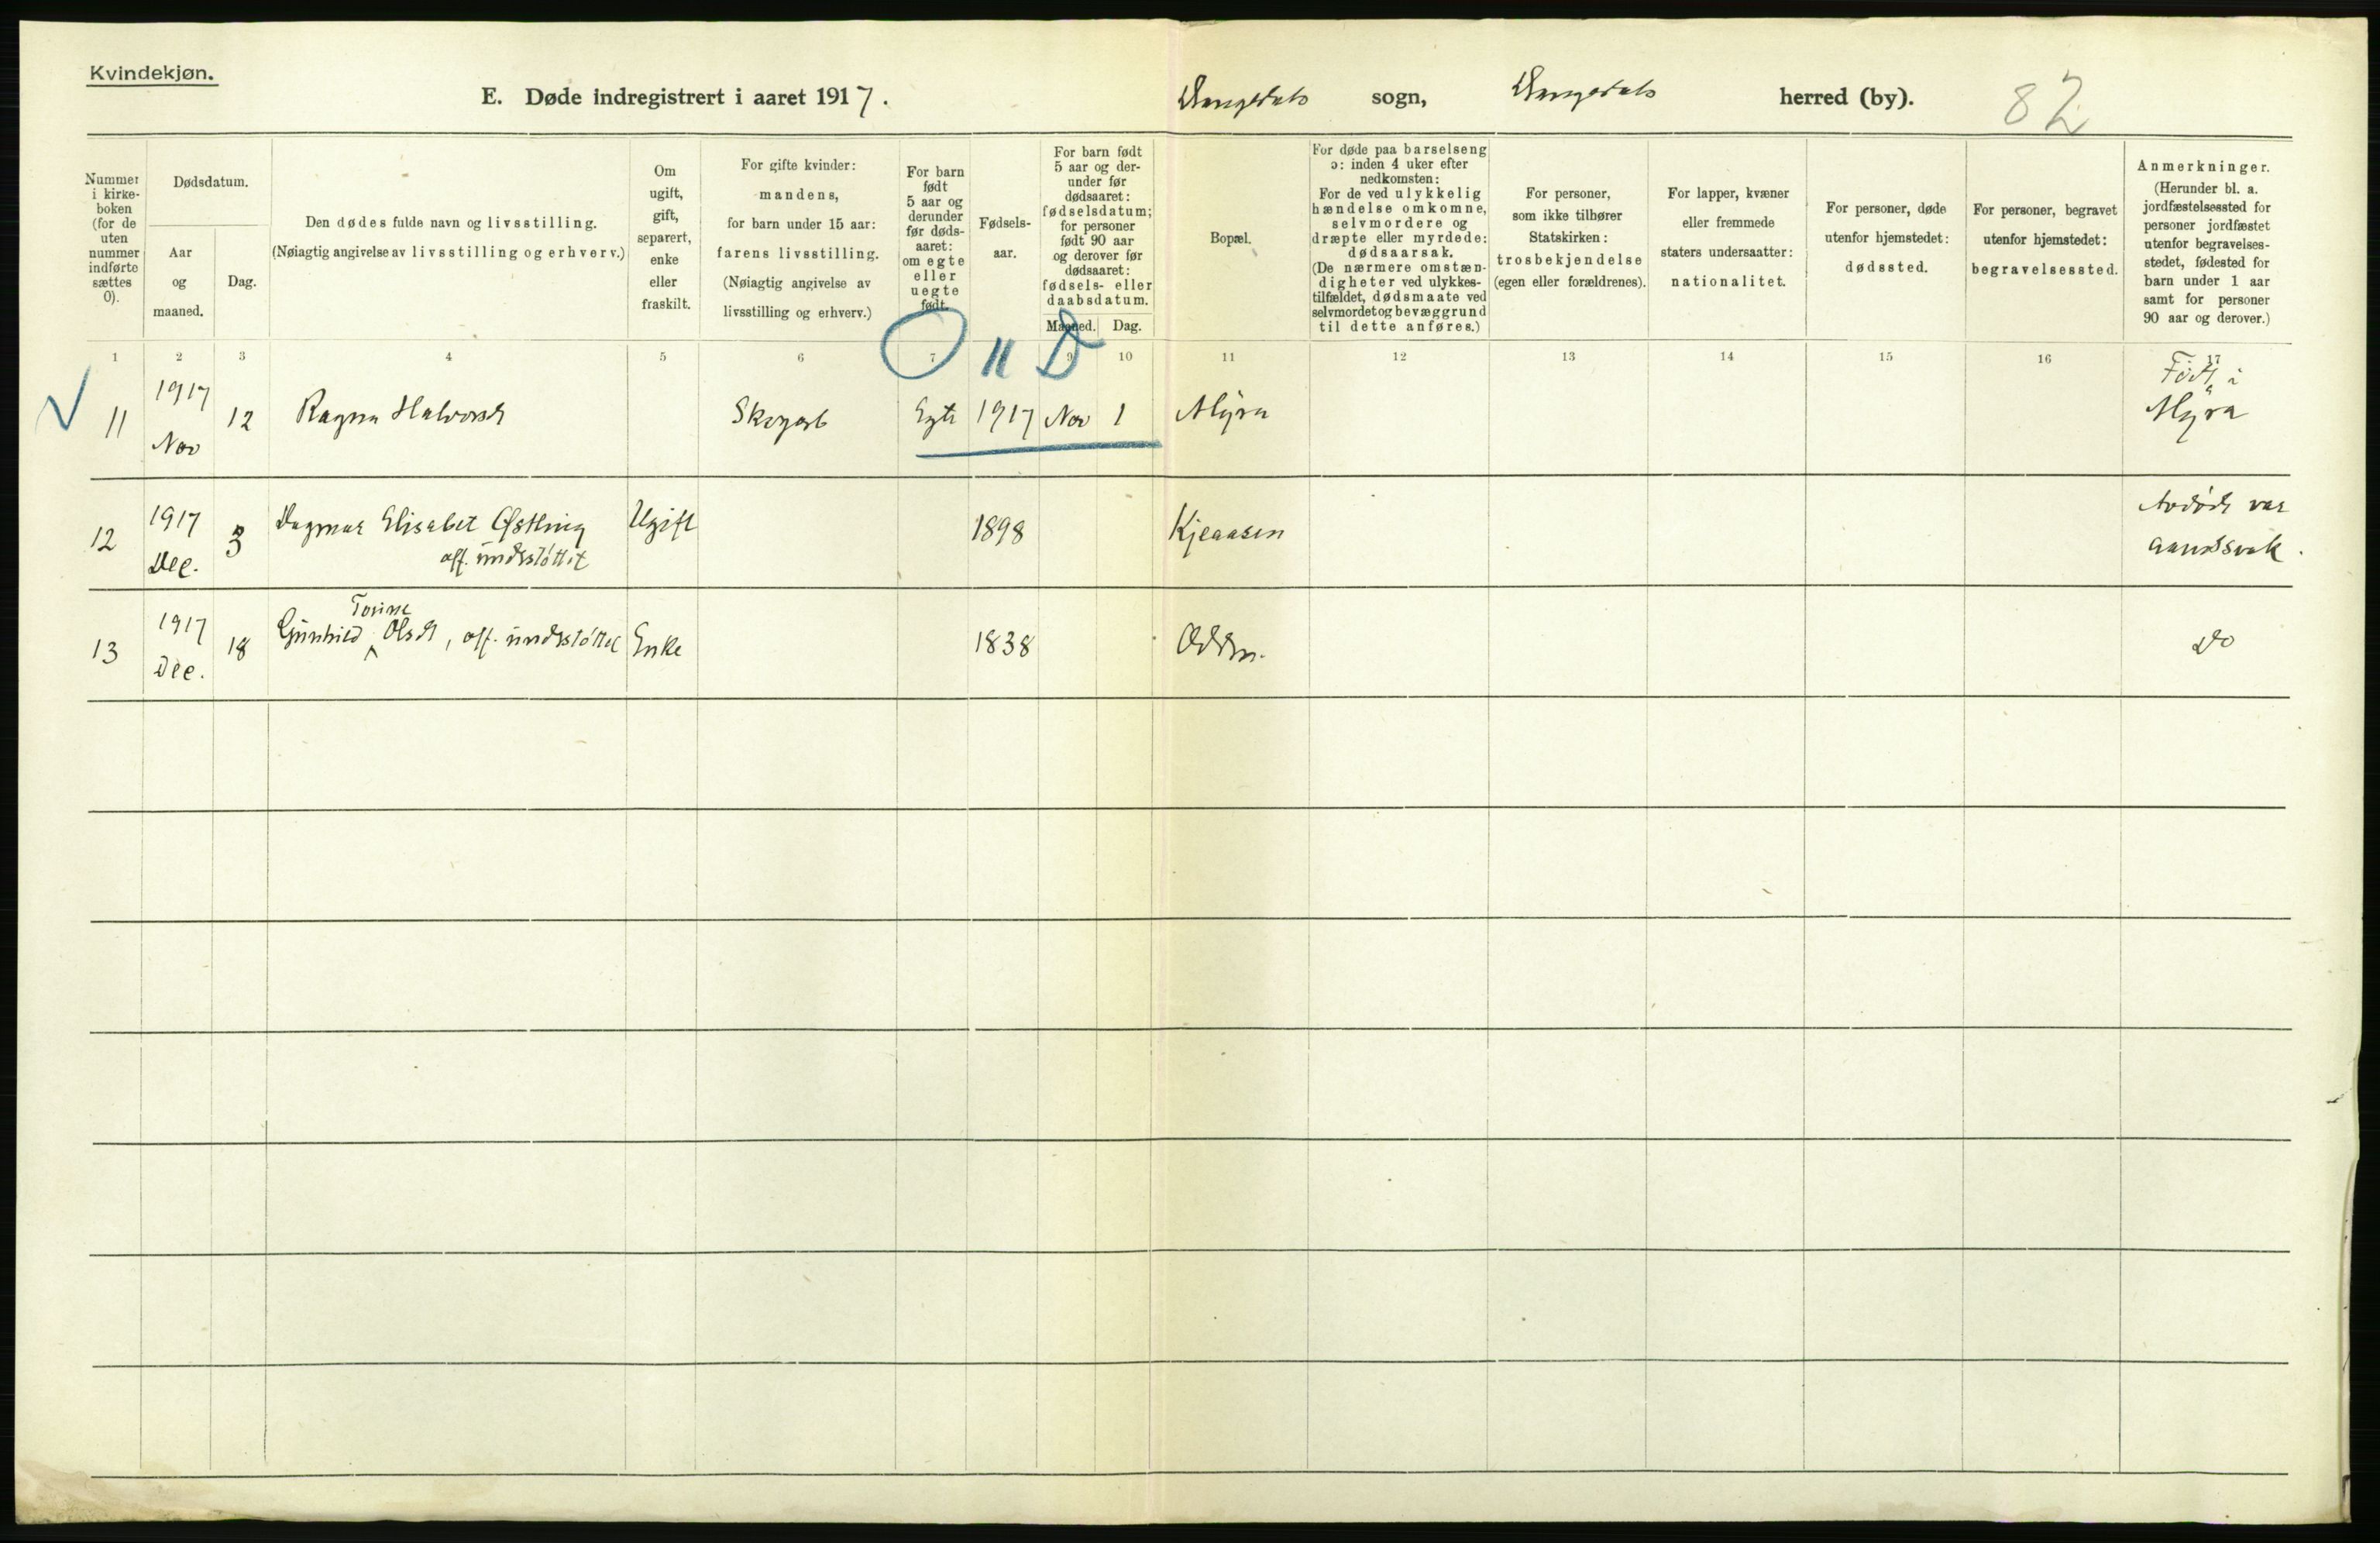 Kvindekjøn.
E. Døde indregistrert i aaret 1917.
Drangedals sogn, Drangedals herred (by). 82
Nummer
i kirke-
boken
(for de
uten
nummer
indførte
sættes
0).
Dødsdatum.
Aar
og
maaned.
Dag.
Den dødes fulde navn og livsstilling.
(Nøiagtig angivelse av livsstilling og erhverv.)
Om
ugift,
gift,
separert,
enke
eller
fraskilt.
For gifte kvinder:
mandens,
for barn under 15 aar:
farens livsstilling.
(Nøiagtig angivelse av
livsstilling og erhverv.)
For barn
født
5 aar og
derunder
før døds-
aaret:
om egte
eller
uegte
født.
Fødsels-
aar.
For barn født
5 aar og der-
under før
dødsaaret:
fødselsdatum;
for personer
født 90 aar
og derover før
dødsaaret:
fødsels- eller
daabsdatum.
Maaned. Dag.
Bopæl.
For døde paa barselseng
ɔ: inden 4 uker efter
nedkomsten:
For de ved ulykkelig
hændelse omkomne,
selvmordere og
dræpte eller myrdede:
dødsaarsak.
(De nærmere omstæn-
digheter ved ulykkes-
tilfældet, dødsmaate ved
selvmordet og bevæggrund
til dette anføres.)
For personer,
som ikke tilhører
Statskirken:
trosbekjendelse
(egen eller forældrenes).
For lapper, kvæner
eller fremmede
staters undersaatter:
nationalitet.
For personer, døde
utenfor hjemstedet:
dødssted.
For personer, begravet
utenfor hjemstedet:
begravelsessted.
Anmerkninger.
(Herunder bl. a.
jordfæstelsessted for
personer jordfæstet
utenfor begravelses-
stedet, fødested for
barn under 1 aar
samt for personer
90 aar og derover.)
1 2 3 4 5 6 7 9 10 11 12 13 14 15 16 17
O 11 D
11 1917 Nov 12 Ragna Halvorsdt Skogarb Egte 1917 Nov 1 Myra Født i
Myra
12 1917 Dec. 3 Dagmar Elisabet Østling Ugift 1898 Kjeaasen Avdøde var
off. understøttet aandssvak.
13 1917 Dec. 18 Gunhild Torine Olsdt, off. understøttet Enke 1838 Odden. Do